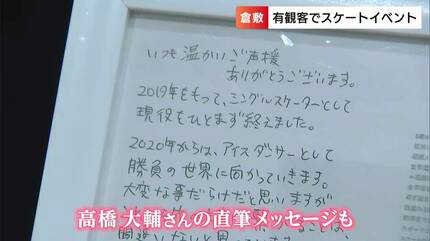 倉敷 有観客でスケートイベント
いつも温かいご声援
ありがとうございます。
2019年をもって、シングルスケーターとして
現役をひとまず終えました。
2020年からは、アイスダンサーとして
勝負の世界に向かっていきます。
大変な事だらけだと思いますが
高橋 大輔さんの直筆メッセージも